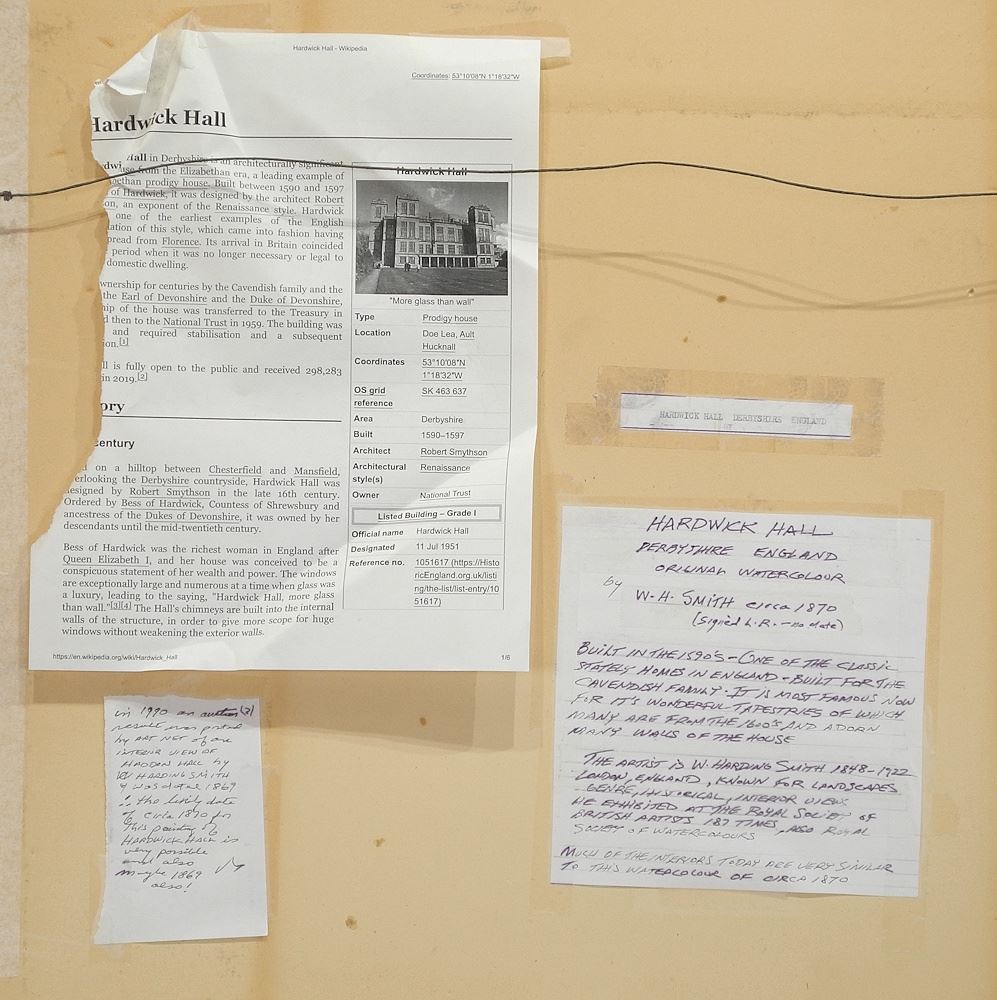 Hardwick Hall - Wikipedia
Coordinates: 53°10′08″N 1°18′32″W
Hardwick Hall
Hall in Derbyshire is an architecturally significant
from the Elizabethan era, a leading example of
prodigy house. Built between 1590 and 1597
of Hardwick, it was designed by the architect Robert
on, an exponent of the Renaissance style. Hardwick
one of the earliest examples of the English
ation of this style, which came into fashion having
pread from Florence. Its arrival in Britain coincided
period when it was no longer necessary or legal to
domestic dwelling.
wnership for centuries by the Cavendish family and the
the Earl of Devonshire and the Duke of Devonshire,
ip of the house was transferred to the Treasury in
d then to the National Trust in 1959. The building was
and required stabilisation and a subsequent
ion.[1]
ll is fully open to the public and received 298,283
in 2019.[2]
ory
century
on a hilltop between Chesterfield and Mansfield,
erlooking the Derbyshire countryside, Hardwick Hall was
designed by Robert Smythson in the late 16th century.
Ordered by Bess of Hardwick, Countess of Shrewsbury and
ancestress of the Dukes of Devonshire, it was owned by her
descendants until the mid-twentieth century.
Bess of Hardwick was the richest woman in England after
Queen Elizabeth I, and her house was conceived to be a
conspicuous statement of her wealth and power. The windows
are exceptionally large and numerous at a time when glass was
a luxury, leading to the saying, "Hardwick Hall, more glass
than wall."[3][4] The Hall's chimneys are built into the internal
walls of the structure, in order to give more scope for huge
windows without weakening the exterior walls.
Hardwick Hall
"More glass than wall"
Type Prodigy house
Location Doe Lea, Ault
Hucknall
Coordinates 53°10′08″N
1°18′32″W
OS grid SK 463 637
reference
Area Derbyshire
Built 1590–1597
Architect Robert Smythson
Architectural Renaissance
style(s)
Owner National Trust
Listed Building – Grade I
Official name Hardwick Hall
Designated 11 Jul 1951
Reference no. 1051617 (https://Histo
ricEngland.org.uk/listi
ng/the-list/list-entry/10
51617)
https://en.wikipedia.org/wiki/Hardwick_Hall 1/6
HARDWICK HALL DERBYSHIRE ENGLAND
HARDWICK HALL
DERBYSHIRE ENGLAND
ORIGINAL WATERCOLOUR
by
W. H. SMITH circa 1870
(Signed L.R. - no date)
BUILT IN THE 1590'S - ONE OF THE CLASSIC
STATELY HOMES IN ENGLAND - BUILT FOR THE
CAVENDISH FAMILY. IT IS MOST FAMOUS NOW
FOR IT'S WONDERFUL TAPESTRIES OF WHICH
MANY ARE FROM THE 1600'S AND ADORN
MANY WALLS OF THE HOUSE
THE ARTIST IS W. HARDING SMITH 1848-1922
LONDON, ENGLAND, KNOWN FOR LANDSCAPES
GENRE, HISTORICAL, INTERIOR VIEWS.
HE EXHIBITED AT THE ROYAL SOCIETY OF
BRITISH ARTISTS 187 TIMES, ALSO ROYAL
SOCIETY OF WATERCOLOURS
MUCH OF THE INTERIORS TODAY ARE VERY SIMILAR
TO THIS WATERCOLOUR OF CIRCA 1870
in 1990 an auction (2)
result was posted
by ART NET of an
INTERIOR VIEW OF
HADDON HALL by
W HARDING SMITH
was dated 1869
the likely date
of circa 1870 for
this painting of
HARDWICK HALL is
very possible
and also
maybe 1869
also!